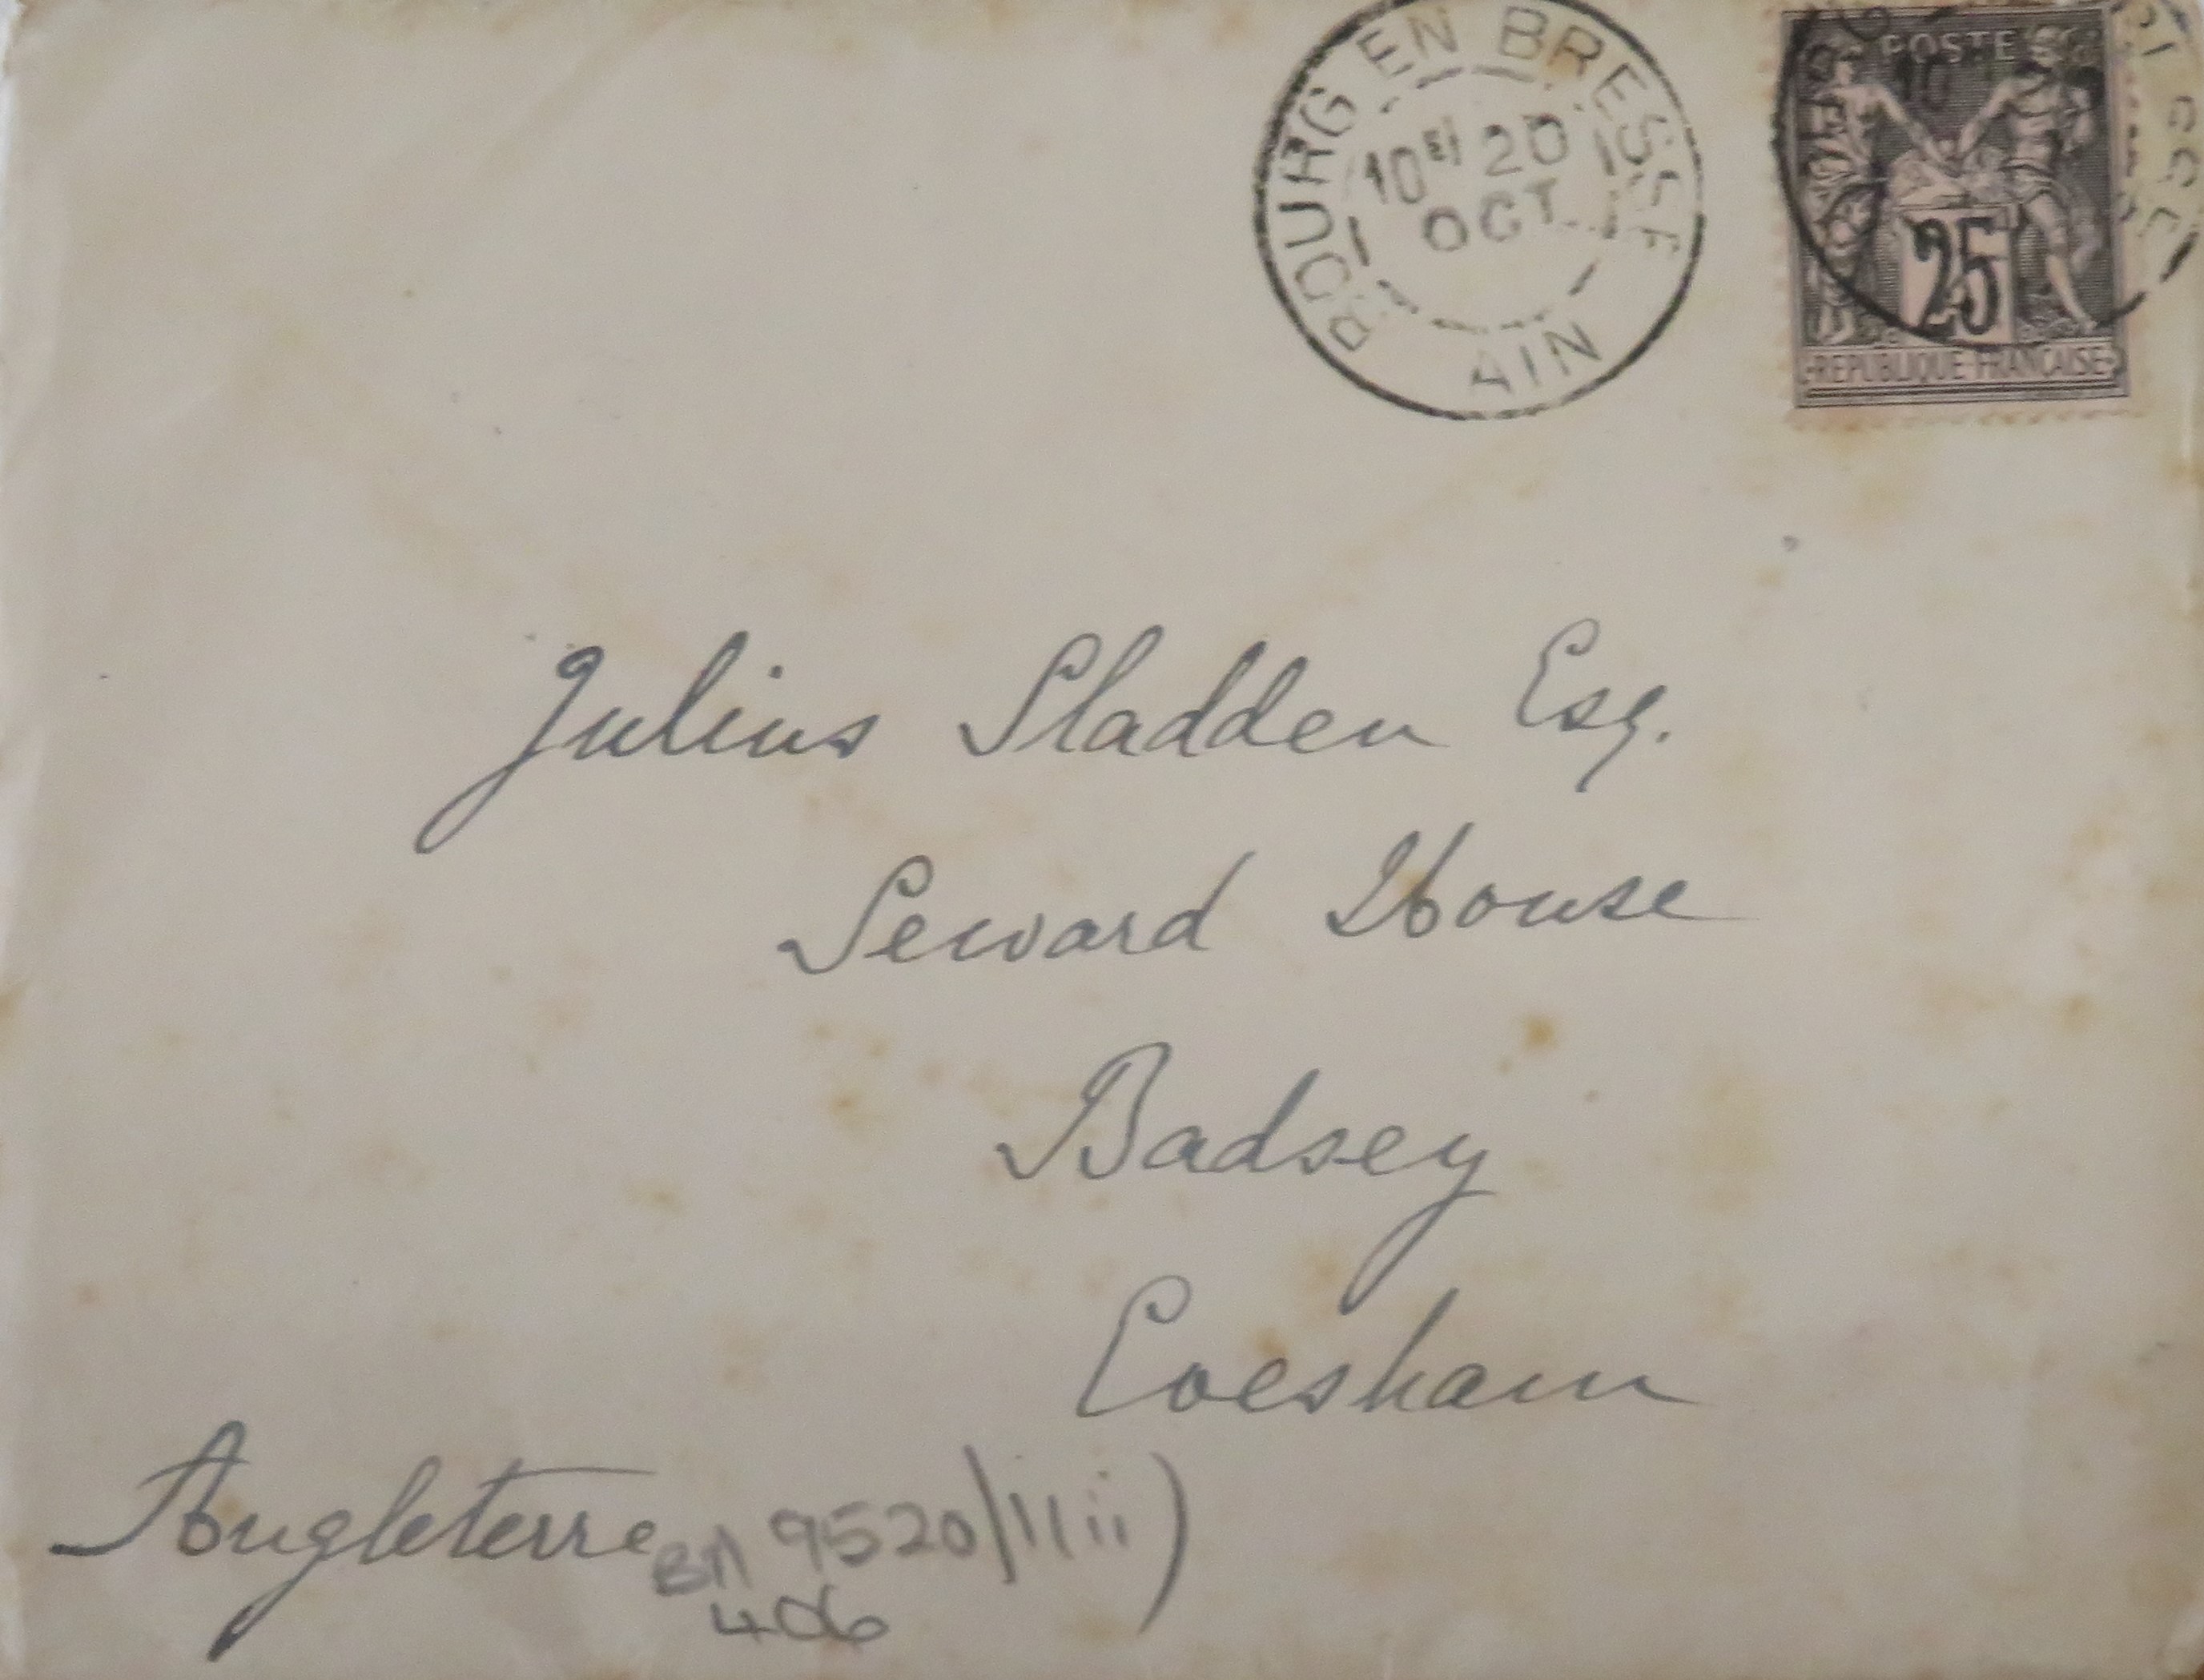 BOURG EN BRESSE
10E 20
OCT
AIN
POSTE
25
REPUBLIQUE FRANCAISE
Julius Sladden Esq.
Seward House
Badsey
Evesham
Angleterre
BA 9520/11ii)
406